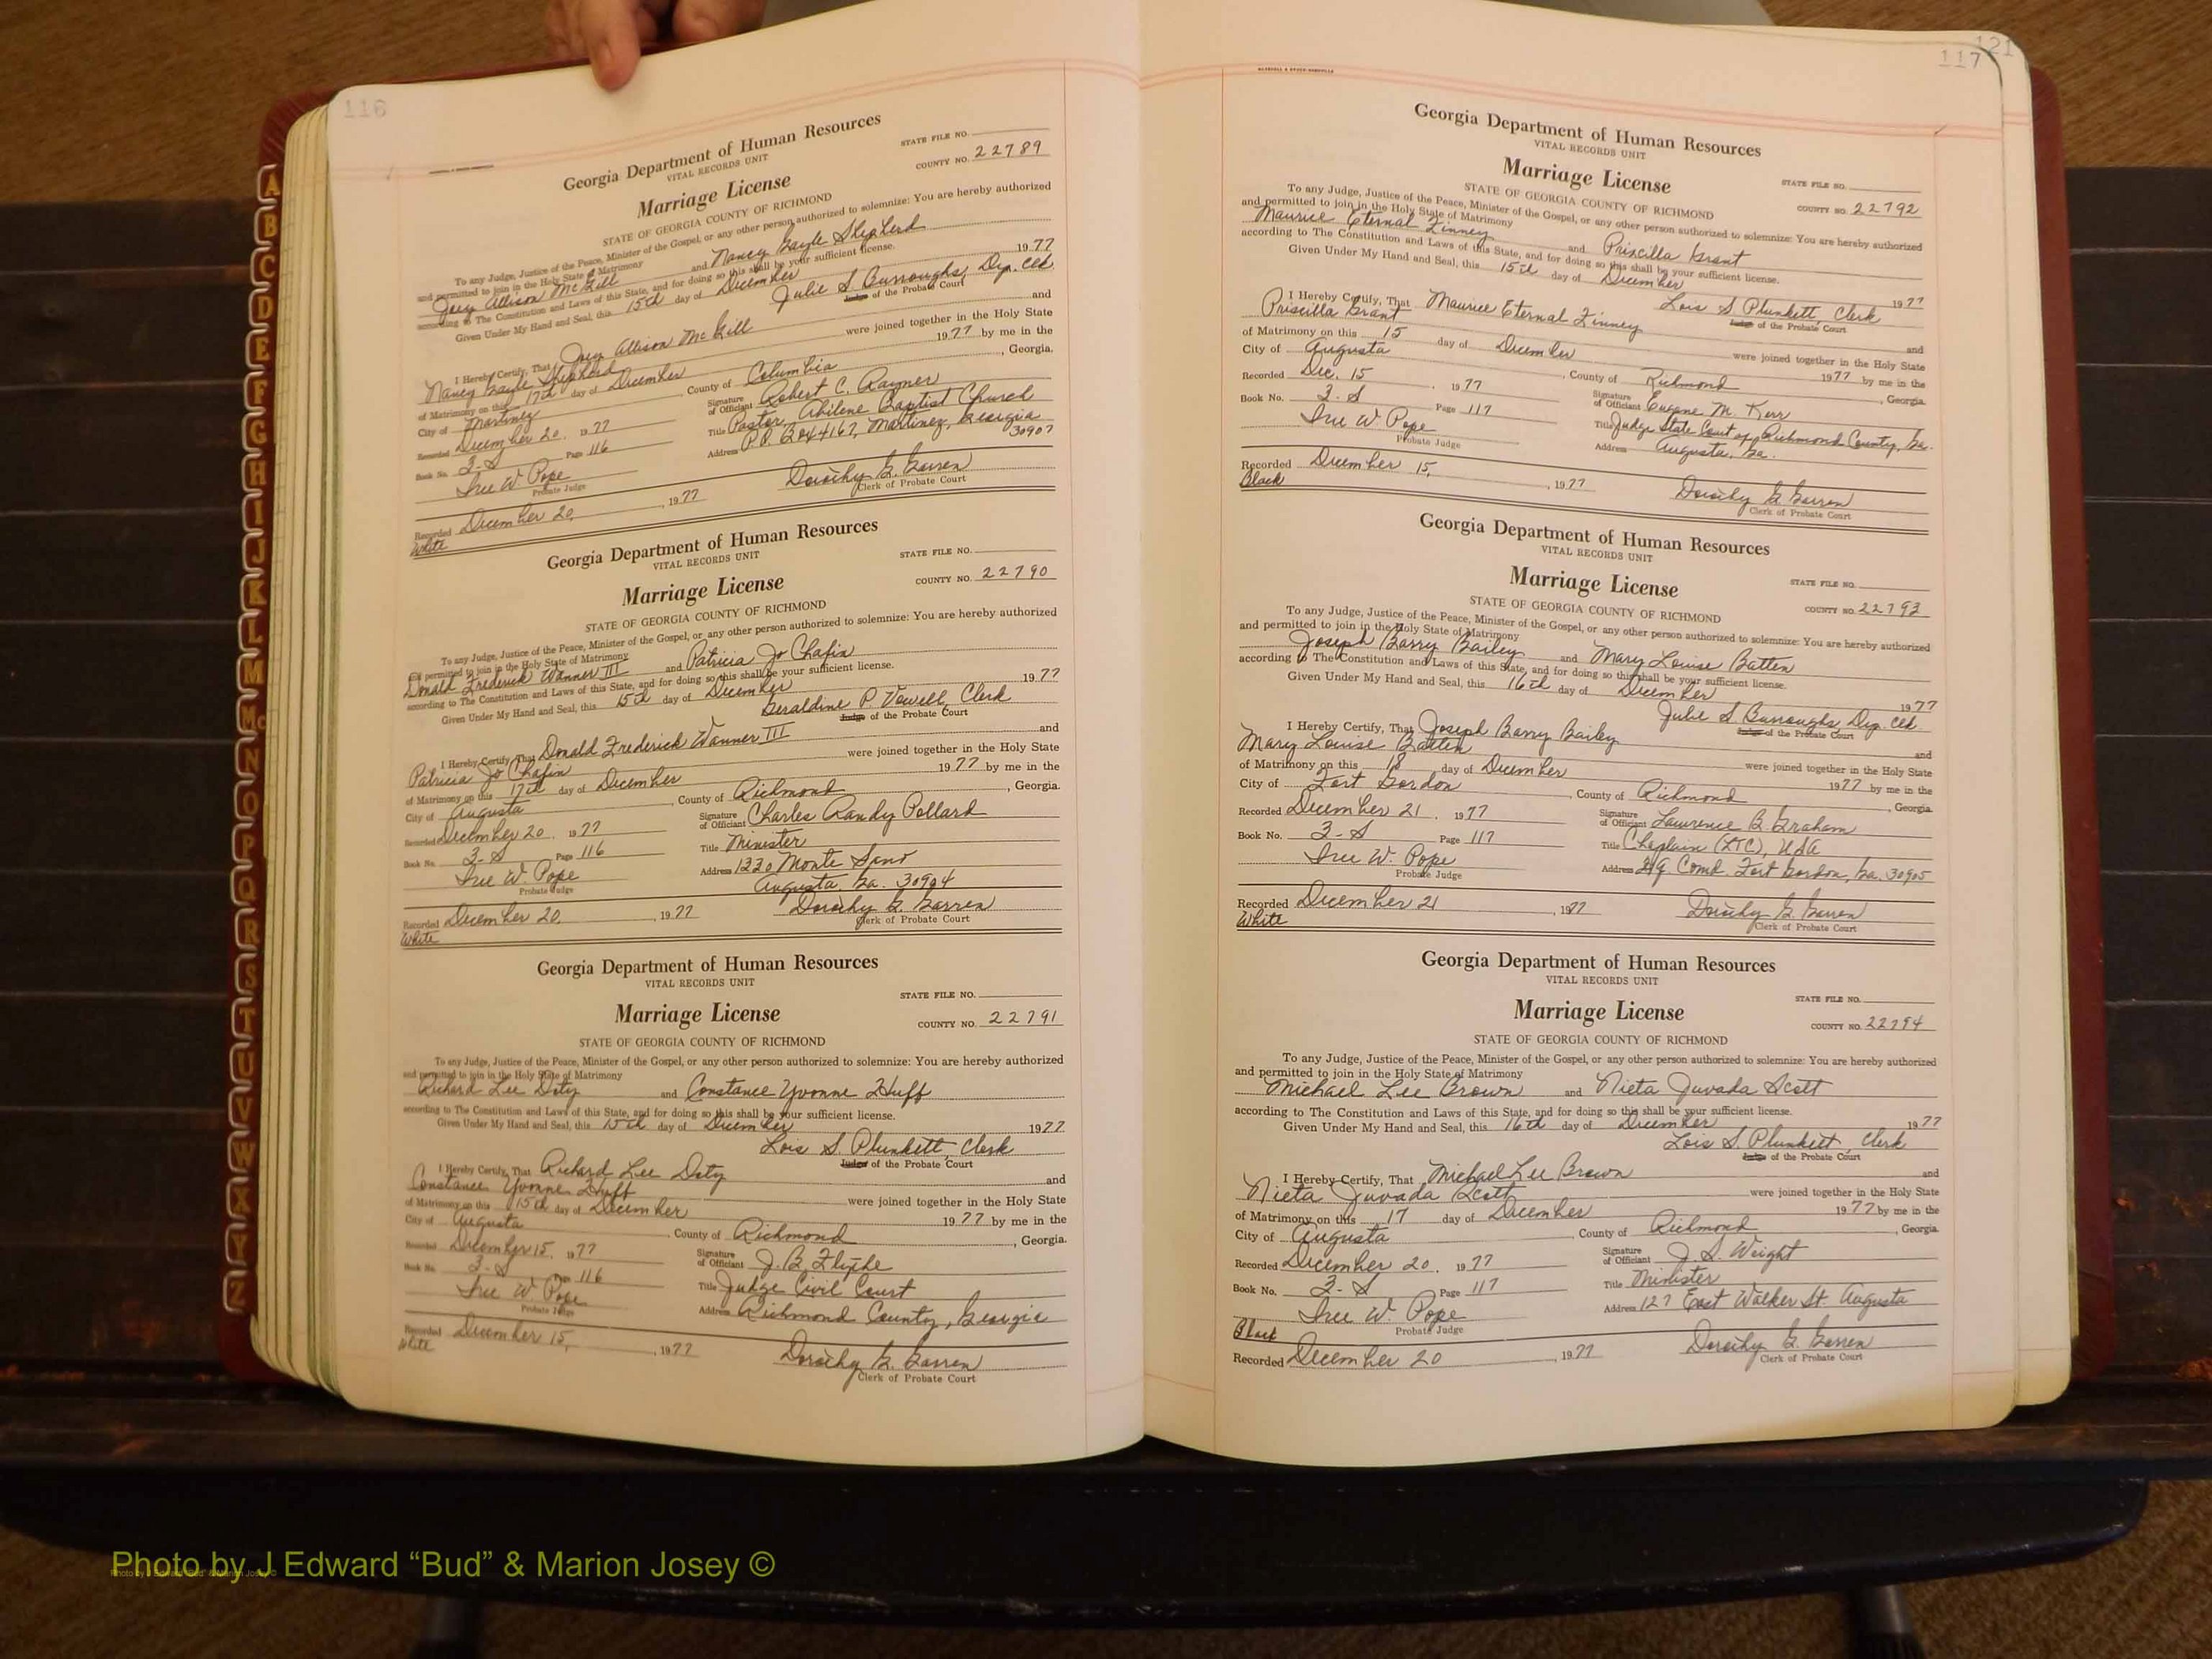 116
Georgia Department of Human Resources
VITAL RECORDS UNIT
STATE FILE NO.
Marriage License
COUNTY NO. 22789
STATE OF GEORGIA COUNTY OF RICHMOND
To any Judge, Justice of the Peace, Minister of the Gospel, or any other person authorized to solemnize: You are hereby authorized
and permitted to join in the Holy State of Matrimony
Joey Allison McGill and Nancy Gayle Shepherd
according to The Constitution and Laws of this State, and for doing so this shall be your sufficient license.
Given Under My Hand and Seal, this 15th day of December 1977
Julie S Burroughs, Dep. Clk.
Judge of the Probate Court
I Hereby Certify, That Joey Allison McGill and
Nancy Gayle Shepherd were joined together in the Holy State
of Matrimony on this 17th day of December 1977 by me in the
City of Martinez County of Columbia, Georgia.
Recorded December 20. 1977 Signature of Officiant Robert C. Rayner
Book No. 3-S Page 116 Title Pastor, Abilene Baptist Church
Iree W. Pope Address P.O. Box 4167, Martinez, Georgia
Probate Judge 30907
Dorothy G. Garren
Recorded December 20, 1977 Clerk of Probate Court
White
Georgia Department of Human Resources
VITAL RECORDS UNIT
STATE FILE NO.
Marriage License
COUNTY NO. 22790
STATE OF GEORGIA COUNTY OF RICHMOND
To any Judge, Justice of the Peace, Minister of the Gospel, or any other person authorized to solemnize: You are hereby authorized
and permitted to join in the Holy State of Matrimony
Donald Frederick Wanner III and Patricia Jo Chafin
according to The Constitution and Laws of this State, and for doing so this shall be your sufficient license.
Given Under My Hand and Seal, this 15th day of December 1977
Geraldine P. Vowell, Clerk
Judge of the Probate Court
I Hereby Certify, That Donald Frederick Wanner III and
Patricia Jo Chafin were joined together in the Holy State
of Matrimony on this 17th day of December 1977 by me in the
City of Augusta, County of Richmond, Georgia.
Recorded December 20. 1977 Signature of Officiant Charles Randy Pollard
Book No. 3-S Page 116 Title Minister
Iree W. Pope Address 1330 Monte Sano
Probate Judge Augusta, Ga. 30904
Dorothy G. Garren
Recorded December 20, 1977 Clerk of Probate Court
White
Georgia Department of Human Resources
VITAL RECORDS UNIT
STATE FILE NO.
Marriage License
COUNTY NO. 22791
STATE OF GEORGIA COUNTY OF RICHMOND
To any Judge, Justice of the Peace, Minister of the Gospel, or any other person authorized to solemnize: You are hereby authorized
and permitted to join in the Holy State of Matrimony
Richard Lee Doty and Constance Yvonne Huff
according to The Constitution and Laws of this State, and for doing so this shall be your sufficient license.
Given Under My Hand and Seal, this 15th day of December 1977
Lois S. Plunkett, Clerk
Judge of the Probate Court
I Hereby Certify, That Richard Lee Doty and
Constance Yvonne Huff were joined together in the Holy State
of Matrimony on this 15th day of December 1977 by me in the
City of Augusta, County of Richmond, Georgia.
Recorded December 15. 1977 Signature of Officiant J. B. Flythe
Book No. 3-S Page 116 Title Judge Civil Court
Iree W. Pope Address Richmond County, Georgia
Probate Judge
Recorded December 15, 1977 Dorothy G. Garren
White Clerk of Probate Court
121
117
Georgia Department of Human Resources
VITAL RECORDS UNIT
Marriage License
STATE FILE NO.
STATE OF GEORGIA COUNTY OF RICHMOND
COUNTY NO. 22792
To any Judge, Justice of the Peace, Minister of the Gospel, or any other person authorized to solemnize: You are hereby authorized
and permitted to join in the Holy State of Matrimony
Maurice Eternal Finney and Priscilla Grant
according to The Constitution and Laws of this State, and for doing so this shall be your sufficient license.
Given Under My Hand and Seal, this 15th day of December 1977
Lois S Plunkett, Clerk
Judge of the Probate Court
I Hereby Certify, That Maurice Eternal Finney and
Priscilla Grant were joined together in the Holy State
of Matrimony on this 15 day of December 1977 by me in the
City of Augusta, County of Richmond, Georgia.
Recorded Dec. 15. 1977 Signature of Officiant Eugene M. Kerr
Book No. 3-S Page 117 Title Judge State Court of Richmond County, Ga.
Iree W. Pope Address Augusta, Ga.
Probate Judge
Recorded December 15, 1977 Dorothy G. Garren
Black Clerk of Probate Court
Georgia Department of Human Resources
VITAL RECORDS UNIT
Marriage License
STATE FILE NO.
STATE OF GEORGIA COUNTY OF RICHMOND
COUNTY NO. 22793
To any Judge, Justice of the Peace, Minister of the Gospel, or any other person authorized to solemnize: You are hereby authorized
and permitted to join in the Holy State of Matrimony
Joseph Barry Bailey and Mary Louise Batten
according to The Constitution and Laws of this State, and for doing so this shall be your sufficient license.
Given Under My Hand and Seal, this 16th day of December 1977
Julie S. Burroughs, Dep. Clk.
Judge of the Probate Court
I Hereby Certify, That Joseph Barry Bailey and
Mary Louise Batten were joined together in the Holy State
of Matrimony on this 18 day of December 1977 by me in the
City of Fort Gordon, County of Richmond, Georgia.
Recorded December 21. 1977 Signature of Officiant Lawrence B. Graham
Book No. 3-S Page 117 Title Chaplain (LTC), USA
Iree W. Pope Address Hq. Comd. Fort Gordon, Ga. 30905
Probate Judge
Recorded December 21, 1977 Dorothy G. Garren
White Clerk of Probate Court
Georgia Department of Human Resources
VITAL RECORDS UNIT
STATE FILE NO.
Marriage License
COUNTY NO. 22794
STATE OF GEORGIA COUNTY OF RICHMOND
To any Judge, Justice of the Peace, Minister of the Gospel, or any other person authorized to solemnize: You are hereby authorized
and permitted to join in the Holy State of Matrimony
Michael Lee Brown and Nieta Juvada Scott
according to The Constitution and Laws of this State, and for doing so this shall be your sufficient license.
Given Under My Hand and Seal, this 16th day of December 1977
Lois S. Plunkett, Clerk
Judge of the Probate Court
I Hereby Certify, That Michael Lee Brown and
Nieta Juvada Scott were joined together in the Holy State
of Matrimony on this 17 day of December 1977 by me in the
City of Augusta, County of Richmond, Georgia.
Recorded December 20. 1977 Signature of Officiant J. S. Wright
Book No. 3-S Page 117 Title Minister
Iree W. Pope Address 127 East Walker St. Augusta
Black Probate Judge
Recorded December 20, 1977 Dorothy G. Garren
Clerk of Probate Court
A
B
C
D
E
F
G
H
I
J
K
L
M
Mc
N
O
P
Q
R
S
T
U
V
W
X
Y
Z
Photo by J Edward “Bud” & Marion Josey ©
Photo by J Edward “Bud” & Marion Josey ©